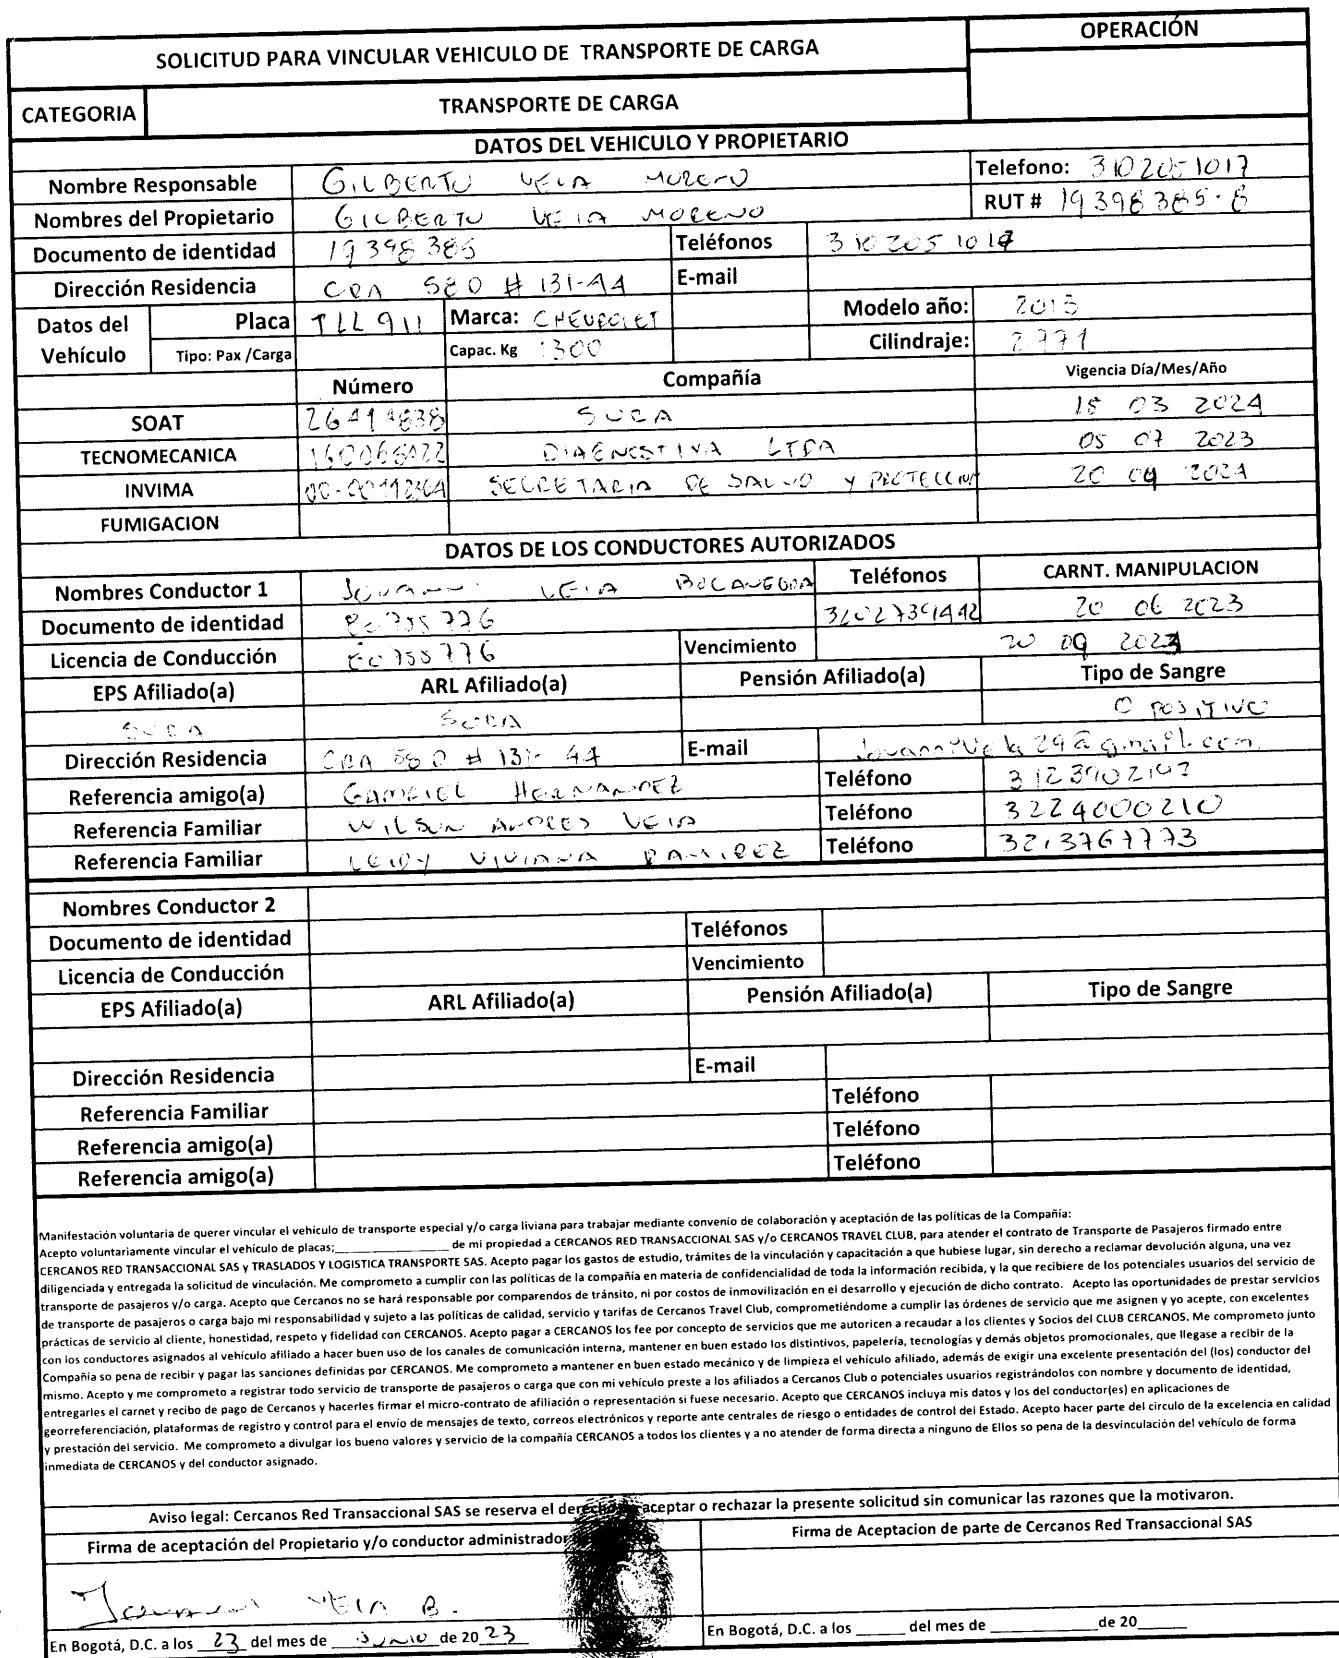 SOLICITUD PARA VINCULAR VEHICULO DE TRANSPORTE DE CARGA
OPERACIÓN
CATEGORIA TRANSPORTE DE CARGA
DATOS DEL VEHICULO Y PROPIETARIO
Nombre Responsable GILBERTO VELA MORENO Telefono: 3102051017
Nombres del Propietario GILBERTO VELA MORENO RUT # 19398385-8
Documento de identidad 19398385 Teléfonos 3102051017
Dirección Residencia CRA 58D # 131-44 E-mail
Datos del Vehículo Placa TLL911 Marca: CHEVROLET Modelo año: 2013
Tipo: Pax /Carga Capac. Kg 1300 Cilindraje: 2771
Número Compañía Vigencia Día/Mes/Año
SOAT SURA 18 03 2024
TECNOMECANICA LTDA 05 07 2023
INVIMA SECRETARIA DE SALUD Y PROTECCION 20 09 2024
FUMIGACION
DATOS DE LOS CONDUCTORES AUTORIZADOS
Nombres Conductor 1 Jovanni VELA BOCANEGRA Teléfonos CARNT. MANIPULACION
Documento de identidad 80755776 3102739442 20 06 2023
Licencia de Conducción 80755776 Vencimiento 20 09 2023
EPS Afiliado(a) ARL Afiliado(a) Pensión Afiliado(a) Tipo de Sangre
SURA SURA O POSITIVO
Dirección Residencia CRA 58 D # 131- 44 E-mail Jovannivela29@gmail.com
Referencia amigo(a) GABRIEL HERNANDEZ Teléfono
Referencia Familiar WILSON ANDRES VELA Teléfono 3224000210
Referencia Familiar LEIDY VIVIANA RAMIREZ Teléfono 3213767773
Nombres Conductor 2
Documento de identidad Teléfonos
Licencia de Conducción Vencimiento
EPS Afiliado(a) ARL Afiliado(a) Pensión Afiliado(a) Tipo de Sangre
Dirección Residencia E-mail
Referencia Familiar Teléfono
Referencia amigo(a) Teléfono
Referencia amigo(a) Teléfono
Manifestación voluntaria de querer vincular el vehículo de transporte especial y/o carga liviana para trabajar mediante convenio de colaboración y aceptación de las políticas de la Compañía:
Acepto voluntariamente vincular el vehículo de placas;_______________ de mi propiedad a CERCANOS RED TRANSACCIONAL SAS y/o CERCANOS TRAVEL CLUB, para atender el contrato de Transporte de Pasajeros firmado entre
CERCANOS RED TRANSACCIONAL SAS y TRASLADOS Y LOGISTICA TRANSPORTE SAS. Acepto pagar los gastos de estudio, trámites de la vinculación y capacitación a que hubiese lugar, sin derecho a reclamar devolución alguna, una vez
diligenciada y entregada la solicitud de vinculación. Me comprometo a cumplir con las políticas de la compañía en materia de confidencialidad de toda la información recibida, y la que recibiere de los potenciales usuarios del servicio de
transporte de pasajeros y/o carga. Acepto que Cercanos no se hará responsable por comparendos de tránsito, ni por costos de inmovilización en el desarrollo y ejecución de dicho contrato. Acepto las oportunidades de prestar servicios
de transporte de pasajeros o carga bajo mi responsabilidad y sujeto a las políticas de calidad, servicio y tarifas de Cercanos Travel Club, comprometiéndome a cumplir las órdenes de servicio que me asignen y yo acepte, con excelentes
prácticas de servicio al cliente, honestidad, respeto y fidelidad con CERCANOS. Acepto pagar a CERCANOS los fee por concepto de servicios que me autoricen a recaudar a los clientes y Socios del CLUB CERCANOS. Me comprometo junto
con los conductores asignados al vehículo afiliado a hacer buen uso de los canales de comunicación interna, mantener en buen estado los distintivos, papelería, tecnologías y demás objetos promocionales, que llegase a recibir de la
Compañía so pena de recibir y pagar las sanciones definidas por CERCANOS. Me comprometo a mantener en buen estado mecánico y de limpieza el vehículo afiliado, además de exigir una excelente presentación del (los) conductor del
mismo. Acepto y me comprometo a registrar todo servicio de transporte de pasajeros o carga que con mi vehículo preste a los afiliados a Cercanos Club o potenciales usuarios registrándolos con nombre y documento de identidad,
entregarles el carnet y recibo de pago de Cercanos y hacerles firmar el micro-contrato de afiliación o representación si fuese necesario. Acepto que CERCANOS incluya mis datos y los del conductor(es) en aplicaciones de
georreferenciación, plataformas de registro y control para el envío de mensajes de texto, correos electrónicos y reporte ante centrales de riesgo o entidades de control del Estado. Acepto hacer parte del circulo de la excelencia en calidad
y prestación del servicio. Me comprometo a divulgar los bueno valores y servicio de la compañía CERCANOS a todos los clientes y a no atender de forma directa a ninguno de Ellos so pena de la desvinculación del vehículo de forma
inmediata de CERCANOS y del conductor asignado.
Aviso legal: Cercanos Red Transaccional SAS se reserva el derecho aceptar o rechazar la presente solicitud sin comunicar las razones que la motivaron.
Firma de aceptación del Propietario y/o conductor administrador Firma de Aceptacion de parte de Cercanos Red Transaccional SAS
Jovanni VELA B.
En Bogotá, D.C. a los 23 del mes de JUNIO de 2023 En Bogotá, D.C. a los ______ del mes de ____________ de 20______